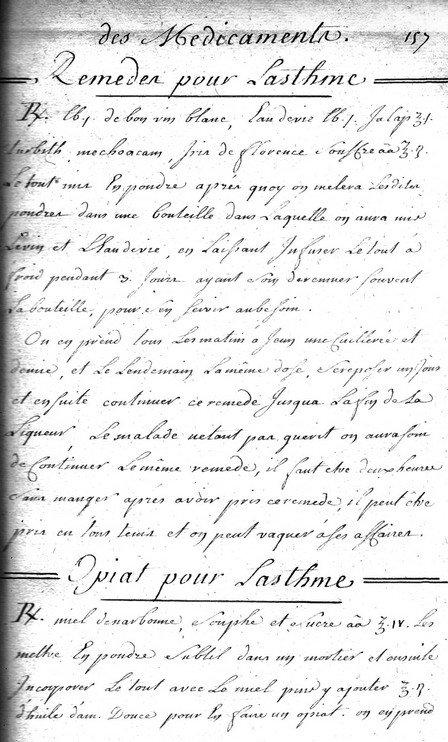 des Medicaments. 157
Remedes pour Lasthme
℞. lb.j. de bon vin blanc, Eau de vie lb.j. Jalap ʒ.j.
turbith. mechoacam. Iris de florence souffre aā ʒ.ij.
Le tout mis En poudre apres quoy on melera Lesdites
poudres dans une bouteille dans Laquelle on aura mis
Levin et L'eaudevie, en Laissant Infuser Le tout a
froid pendant 3. Jours ayant soin deremuer souvent
Labouteille, pour s'en servir aubesoin.
On en prend tous Lesmatins a Jeun unecuillerée et
demie, et Le Lendemain Lamême dose, sereposer un Jour
et ensuite continuer ceremede Jusqua Lafin de La
Liqueur, Le malade netant pas guerit on aurasoin
de Continuer Lemême remede, il faut etre deuxheures
sans manger aprés avoir pris ceremede, il peut être
pris en tous tems et on peut vaquer áses affaires.
Opiat pour Lasthme
℞. miel denarbonne, souphe et sucre aā ʒ.iv. Les
mettre En poudre subtil dans un mortier et ensuite
Incorporer Le tout avec Le miel puis y ajouter ʒ.ij.
d'huile dam. Douce pour En faire un opiat. on en prend